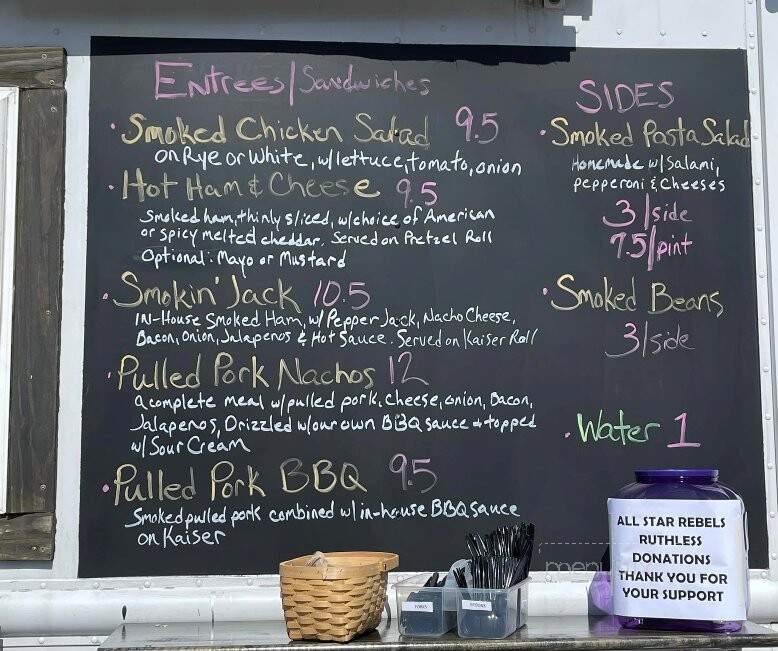 Entrees/Sandwiches
• Smoked Chicken Salad 9.5
on Rye or White, w/lettuce, tomato, onion
• Hot Ham & Cheese 9.5
Smoked ham, thinly sliced, w/choice of American
or spicy melted cheddar. Served on Pretzel Roll
Optional: Mayo or Mustard
• Smokin' Jack 10.5
IN-House Smoked Ham, w/ Pepper Jack, Nacho Cheese,
Bacon, Onion, Jalapenos & Hot Sauce. Served on Kaiser Roll
• Pulled Pork Nachos 12
a complete meal w/pulled pork, cheese, onion, Bacon,
Jalapenos, Drizzled w/our own BBQ sauce + topped
w/ Sour Cream
• Pulled Pork BBQ 9.5
Smoked pulled pork combined w/ in-house BBQ sauce
on Kaiser
SIDES
• Smoked Pasta Salad
Homemade w/ Salami,
pepperoni & Cheeses
3/side
7.5/pint
• Smoked Beans
3/side
• Water 1
ALL STAR REBELS
RUTHLESS
DONATIONS
THANK YOU FOR
YOUR SUPPORT
FORKS
SPOONS